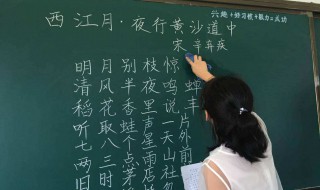 兴趣+好习惯+毅力=成功
西江月·夜行黄沙道中
宋 辛弃疾
明月别枝惊
清风半夜鸣蝉
稻花香里说丰
听取蛙声一片
七八个星天外
两三点雨山前
旧时茅店社